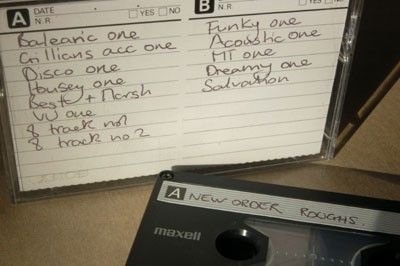 A DATE
N.R. YES NO
Balearic one
Gillians acc one
Disco one
Housey one
Best + Marsh
VU one
8 track no1
8 track no2
B N.R. YES NO
Funky one
Acoustic one
MT one
Dreamy one
Salvation
A NEW ORDER ROUGHS.
maxell